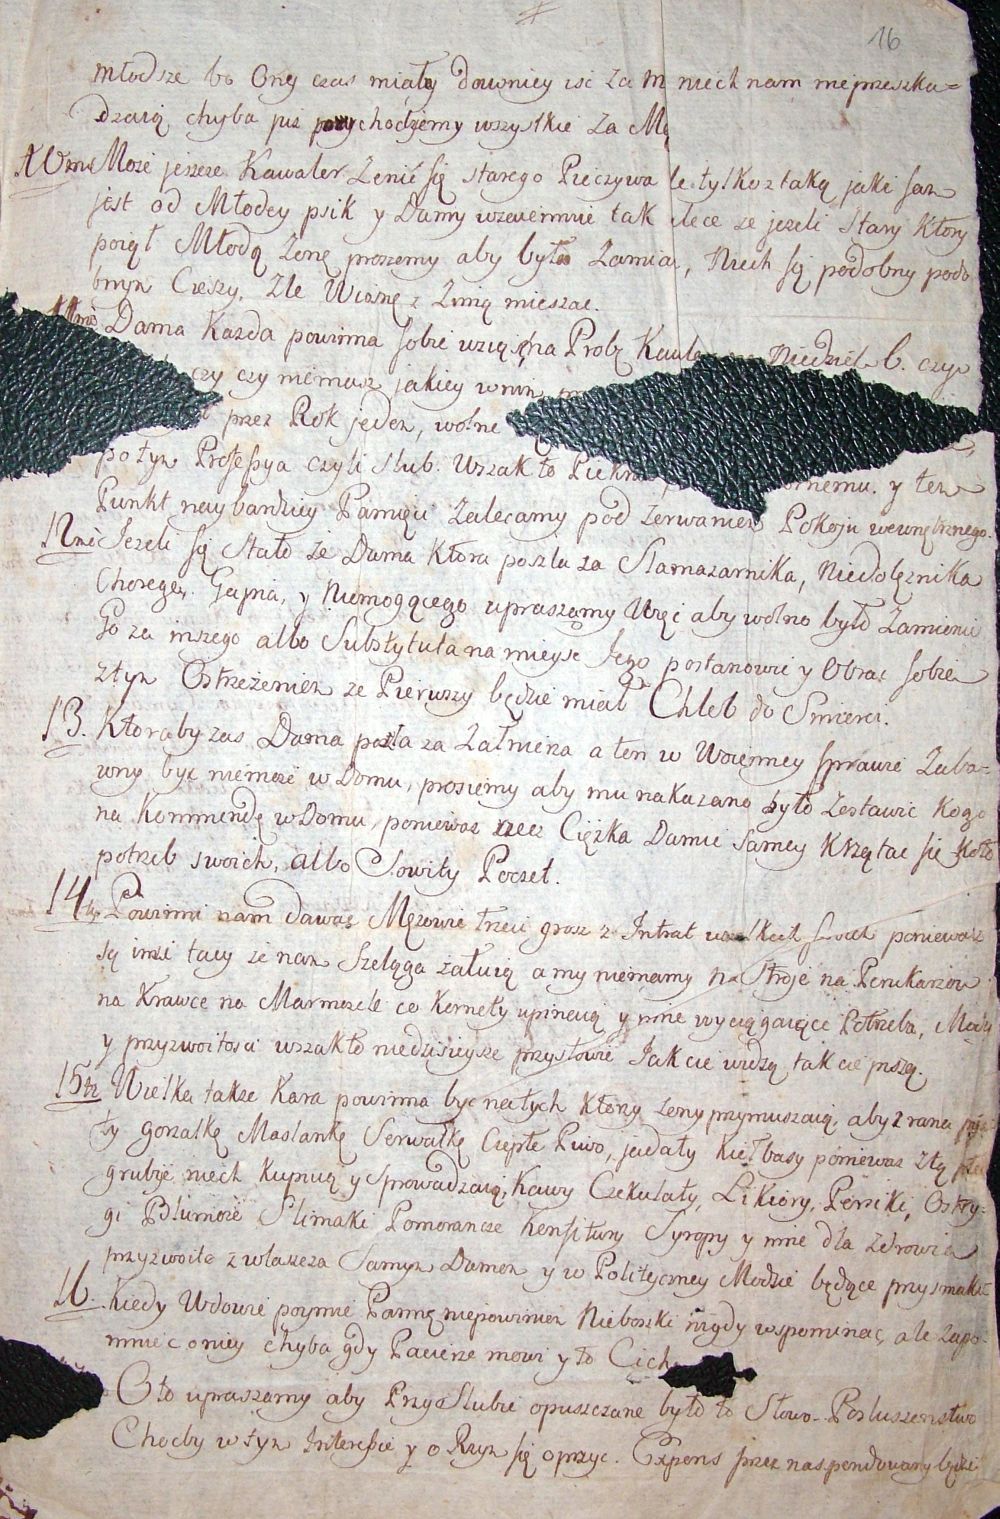 16
młodsze bo Oney czas miały dawniey iść za M niech nam nieprzeszka=
dzaią chyba już pochodzemy wszystkie za Mę
10mo Może jeszcze Kawaler Zenić się starego Pieczywa le tylko z taką jaki sam
jest od Młodey psik y Damy wzaiemnie tak chcą że jeżeli Stary Który
poiął Młodą Zonę proszemy aby była Zamiar, Niech się podobny podo
bnym Cieszy, Zle Wiosnę z Zimą mieszać.
11mo Dama Każda powinna sobie wziąść na Probę Kawa Niedziel 6. czy
czy czy niemasz jakiey w nim
przez Rok jeden, wolne
po tym Professya czyli Slub. Wszak to Piekne rnemu. y ten
Punkt naybardziey Pamięci Zalecamy pod Zerwaniem Pokoju wewnętrznego.
12mo Jezeli się stało że Dama Która poszła za Slamazarnika, Niedołęznika
Choregę, Gapia, y Niemogącego upraszamy Więc aby wolno było Zamienić
Go za inszego albo Substytuta na mieysc Jego postanowić y Obrać sobie
z tym Ostrzeżeniem że Pierwszy będzie miał Chleb do Smierci.
13. Któraby zas Dama poszła za Zołnierza a ten w Woienney sprawie Zaba=
wny być niemoże w Domu, prosiemy aby mu nakazano było Zostawić Kogo
na Kommendę w Domu, ponieważ rzecz Ciężka Damie Samey Krzątać się Koło
potrzeb swoich, albo Sowity Poczet.
14to Powinni nam dawać Mężowie trzeci grosz z Intrat wszelkich swoich ponieważ
są inni tacy że nam Szeląga żałuią a my niemamy na Stroje na Perukarzow
na Krawce na Marmozele co Kornety upinaią y inne wyciągaiące Potrzeba, Mody
y przyzwoitosci wszak to niedzisieysze przysłowie Jak cie widzą tak cie piszą.
15to Wielka także Kara powinna być na tych Którzy żony przymuszaią, aby z rana pija
ły gorzałkę Maslankę Serwatkę Ciepłe Piwo, jadały Kiełbasy ponieważ Ztą płeć
grubieie niech Kupuią y sprowadzaią, Kawy Czekulaty, Likiory, Persiki, Ostry=
gi Blumoże Slimaki Pomorancze Konfitury Syropy y inne dla Zdrowia
przyzwoite zwłaszcza Samym Damom y w Polityczney Modzie będące przysmaki
16. Kiedy Wdowiec poymie Pannę niepowinien Nieboszki nigdy wspominać, ale Zapo=
mnieć oniey chyba gdy Pacierze mowi y to Cich
Oto upraszamy aby Przy Slubie opuszczane było to Słowo Posłuszenstwo
Choćby w tym Interessie y o Rzym się oprzyc. Expens przez nas pendowany będzie